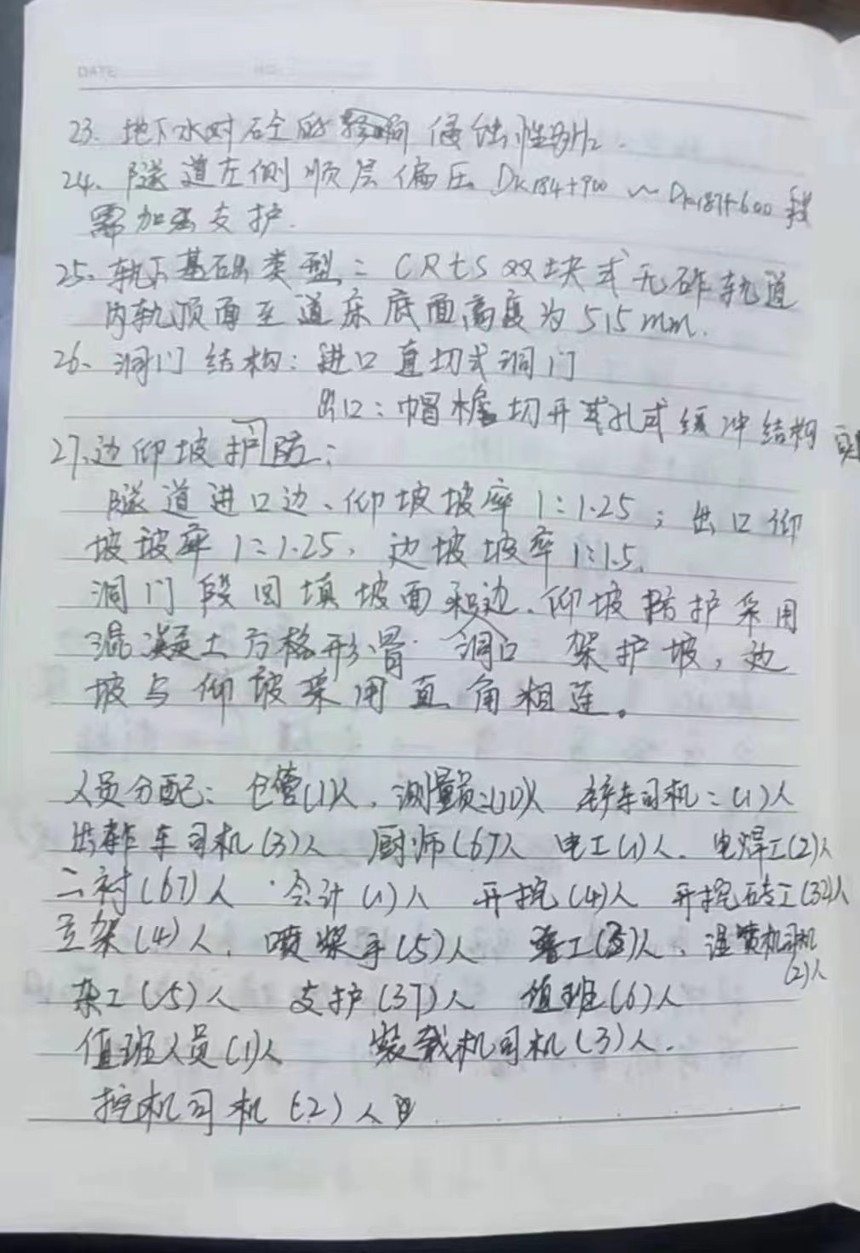 DATE NO.
23. 地下水对砼的影响 侵蚀性为H2.
24、隧道左侧顺层偏压 DK184+900 ~ DK187+600 段
需加强支护.
25、轨下基础类型：CRtS双块式无砟轨道
内轨顶面至道床底面高度为515mm.
26、洞门结构：进口直切式洞门
出口：帽檐切开式孔式缓冲结构
27、边仰坡护防：
隧道进口边、仰坡坡率1:1.25；出口仰
坡坡率1:1.25，边坡坡率1:1.5.
洞门段回填坡面和边、仰坡防护采用
混凝土方格形骨 洞口 架护坡，边
坡与仰坡采用直角相连。
人员分配：仓管(1)人、测量员:(10)人 司机：(1)人
出车司机(3)人 厨师(6)人 电工(1)人、电焊工(2)人
二衬(67)人 会计(1)人 开挖(4)人 开挖工(32)人
立架(4)人、喷浆手(5)人 工人、湿喷机司机
(2)人
杂工(5)人 支护(37)人 值班(6)人
值班人员(1)人 装载机司机(3)人.
挖机司机(2)人